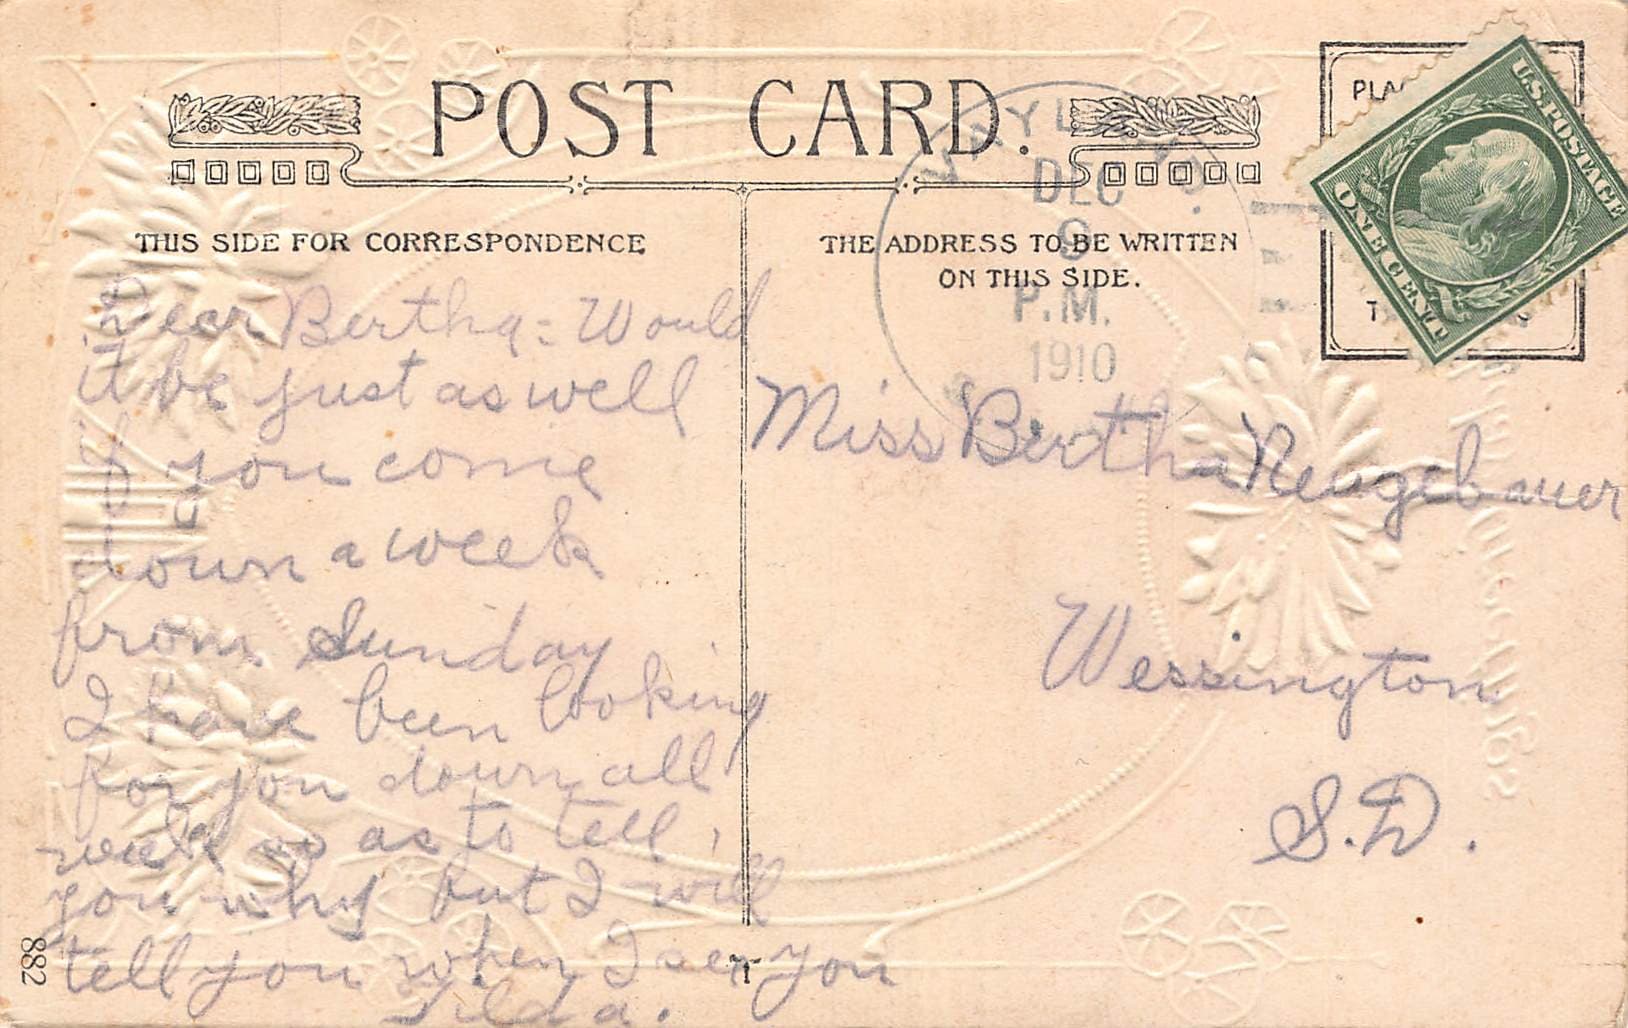 POST CARD.
THIS SIDE FOR CORRESPONDENCE
Dear Bertha:- Would
it be just as well
if you come
down a week
from Sunday
I have been looking
for you down all
week so as to tell
you why but I will
tell you when I see you
882
THE ADDRESS TO BE WRITTEN
ON THIS SIDE.
DEC
9
P.M.
1910
U.S. POSTAGE
ONE CENT
Miss Bertha Neugebauer
Wessington
S.D.